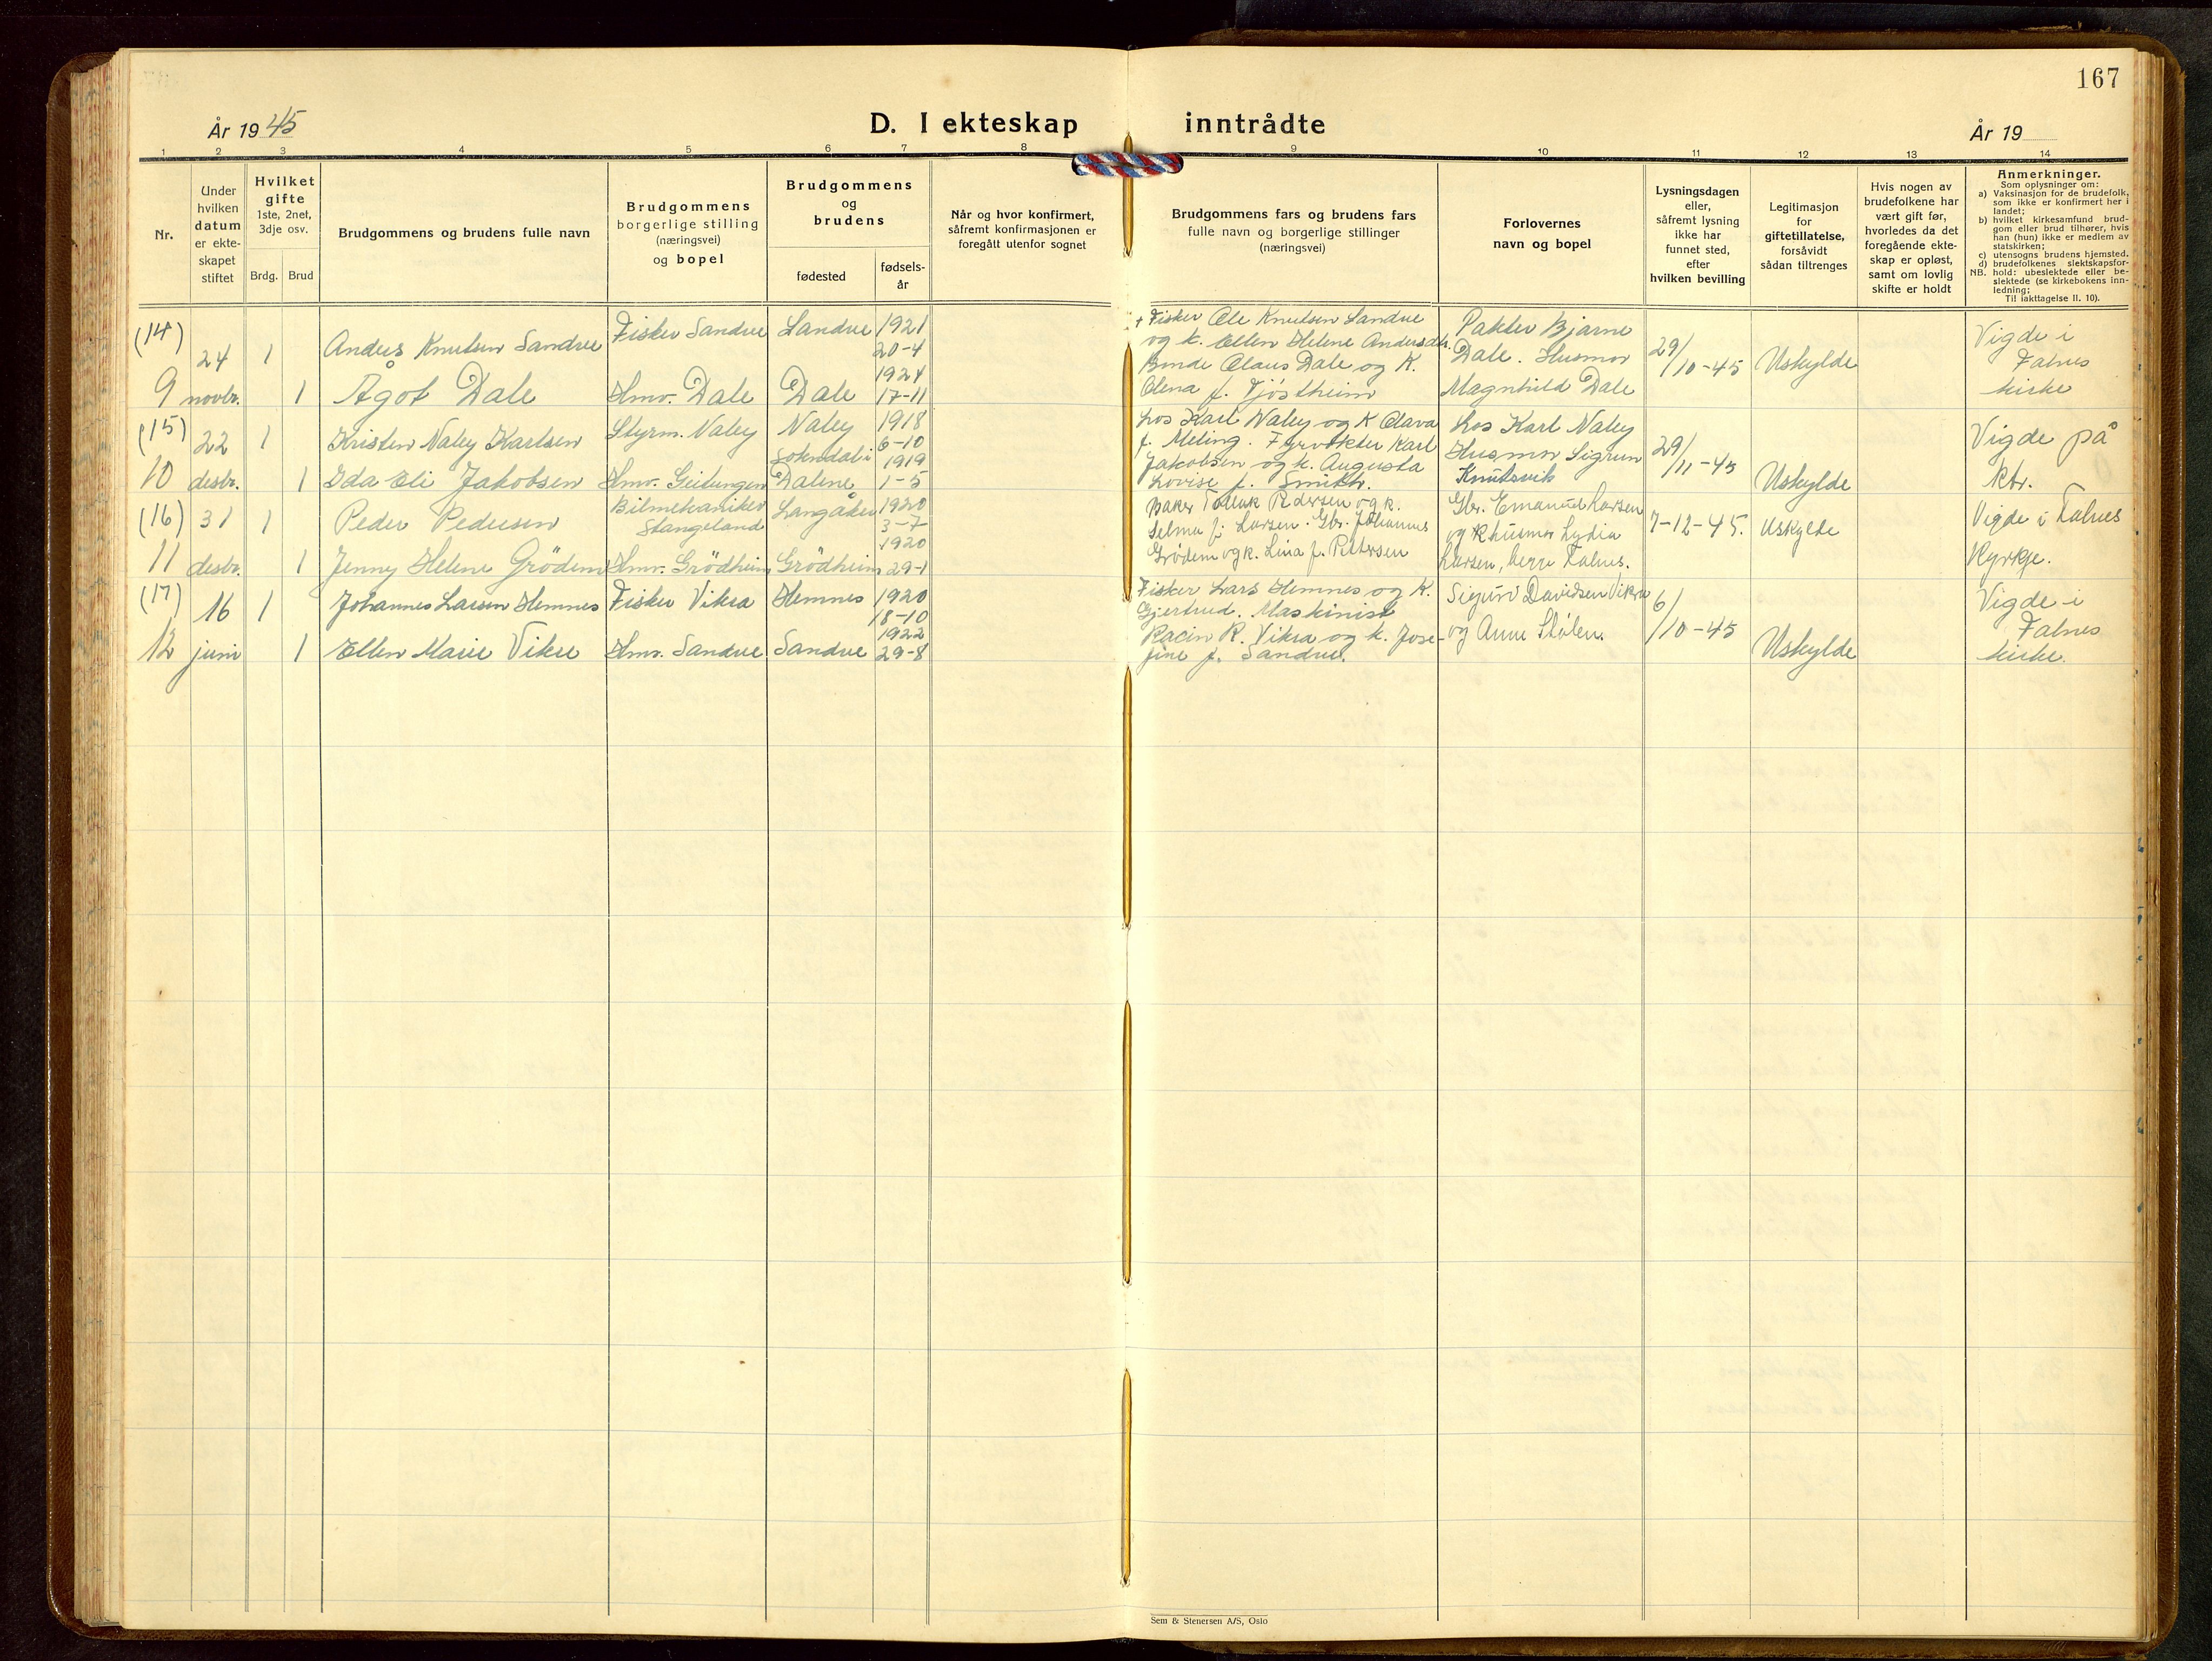 167
År 1945
D. I ekteskap inntrådte
År 19
1 2 3 4 5 6 7 8 9 10 11 12 13 14
Nr.
Under
hvilken
datum
er ekte-
skapet
stiftet
Hvilket
gifte
1ste, 2net,
3dje osv.
Brdg. Brud
Brudgommens og brudens fulle navn
Brudgommens
borgerlige stilling
(næringsvei)
og bopel
Brudgommens
og
brudens
fødested
fødsels-
år
Når og hvor konfirmert,
såfremt konfirmasjonen er
foregått utenfor sognet
Brudgommens fars og brudens fars
fulle navn og borgerlige stillinger
(næringsvei)
Forlovernes
navn og bopel
Lysningsdagen
eller,
såfremt lysning
ikke har
funnet sted,
efter
hvilken bevilling
Legitimasjon
for
giftetillatelse,
forsåvidt
sådan tiltrenges
Hvis nogen av
brudefolkene har
vært gift før,
hvorledes da det
foregående ekte-
skap er opløst,
samt om lovlig
skifte er holdt
Anmerkninger.
Som oplysninger om:
a) Vaksinasjon for de brudefolk,
som ikke er konfirmert her i
landet;
b) hvilket kirkesamfund brud-
gom eller brud tilhører, hvis
han (hun) ikke er medlem av
statskirken;
c) utensogns brudens hjemsted.
d) brudefolkenes slektskapsfor-
NB. hold: ubeslektede eller be-
slektede (se kirkebokens inn-
ledning;
Til iakttagelse II. 10).
(14)
9
24
novbr.
1
1
Anders Knutsen Sandve
Ågot Dale
Fisker Sandve
Hmv. Dale
Sandve
Dale
1921
20-4
1924
17-11
+ Fisker Ole Knutsen Sandve
og k. Ellen Helene Andersdtr.
Bonde Claus Dale og K.
Olena f. Tjøstheim
Pakter Bjarne
Dale. Husmor
Magnhild Dale
29/10-45
Uskylde
Vigde i
Falnes
kirke
(15)
10
22
desbr.
1
1
Kristen Naley Karlsen
Ida Eli Jakobsen
Styrm. Naley
Hmv. Geitungen
Naley
Sokndal i
Dalene
1918
6-10
1919
1-5
Los Karl Naley og K Olava
f. Meling. Fyrvokter Karl
Jakobsen og k. Augusta
Lovise f. Smith.
Los Karl Naley
Husmor Sigrun
Knutsvik
29/11-45
Uskylde
Vigde på
ktr.
(16)
11
31
desbr.
1
1
Peder Pedersen
Jenny Helene Grödem
Bilmekaniker
Stangeland
Hmv. Grödheim
Langåker
Grödheim
1920
3-7
1920
29-1
Baker Tollak Pedersen og k.
Selma f. Larsen. Gbr. Johannes
Grödem og k. Lina f. Pettersen
Gbr. Emanuel Larsen
og Rhusmor Lydia
Larsen, Nerre Falnes.
7-12-45.
Uskylde
Vigde i Falnes
Kyrkje.
(17)
12
16
juni
1
1
Johannes Larsen Hemnes
Ellen Marie Vikre
Fisker Vikra
Hmv. Sandve
Hemnes
Sandve
1920
18-10
1922
29-8
Fisker Lars Hemnes og K.
Gjertrud. Maskinist
Racin R. Vikra og k. Jose-
fine f. Sandve.
Sigurd Davidsen Vikra
og Anne Stølen.
6/10-45
Uskylde
Vigde i
Falnes
kirke.
Sem & Stenersen A/S, Oslo